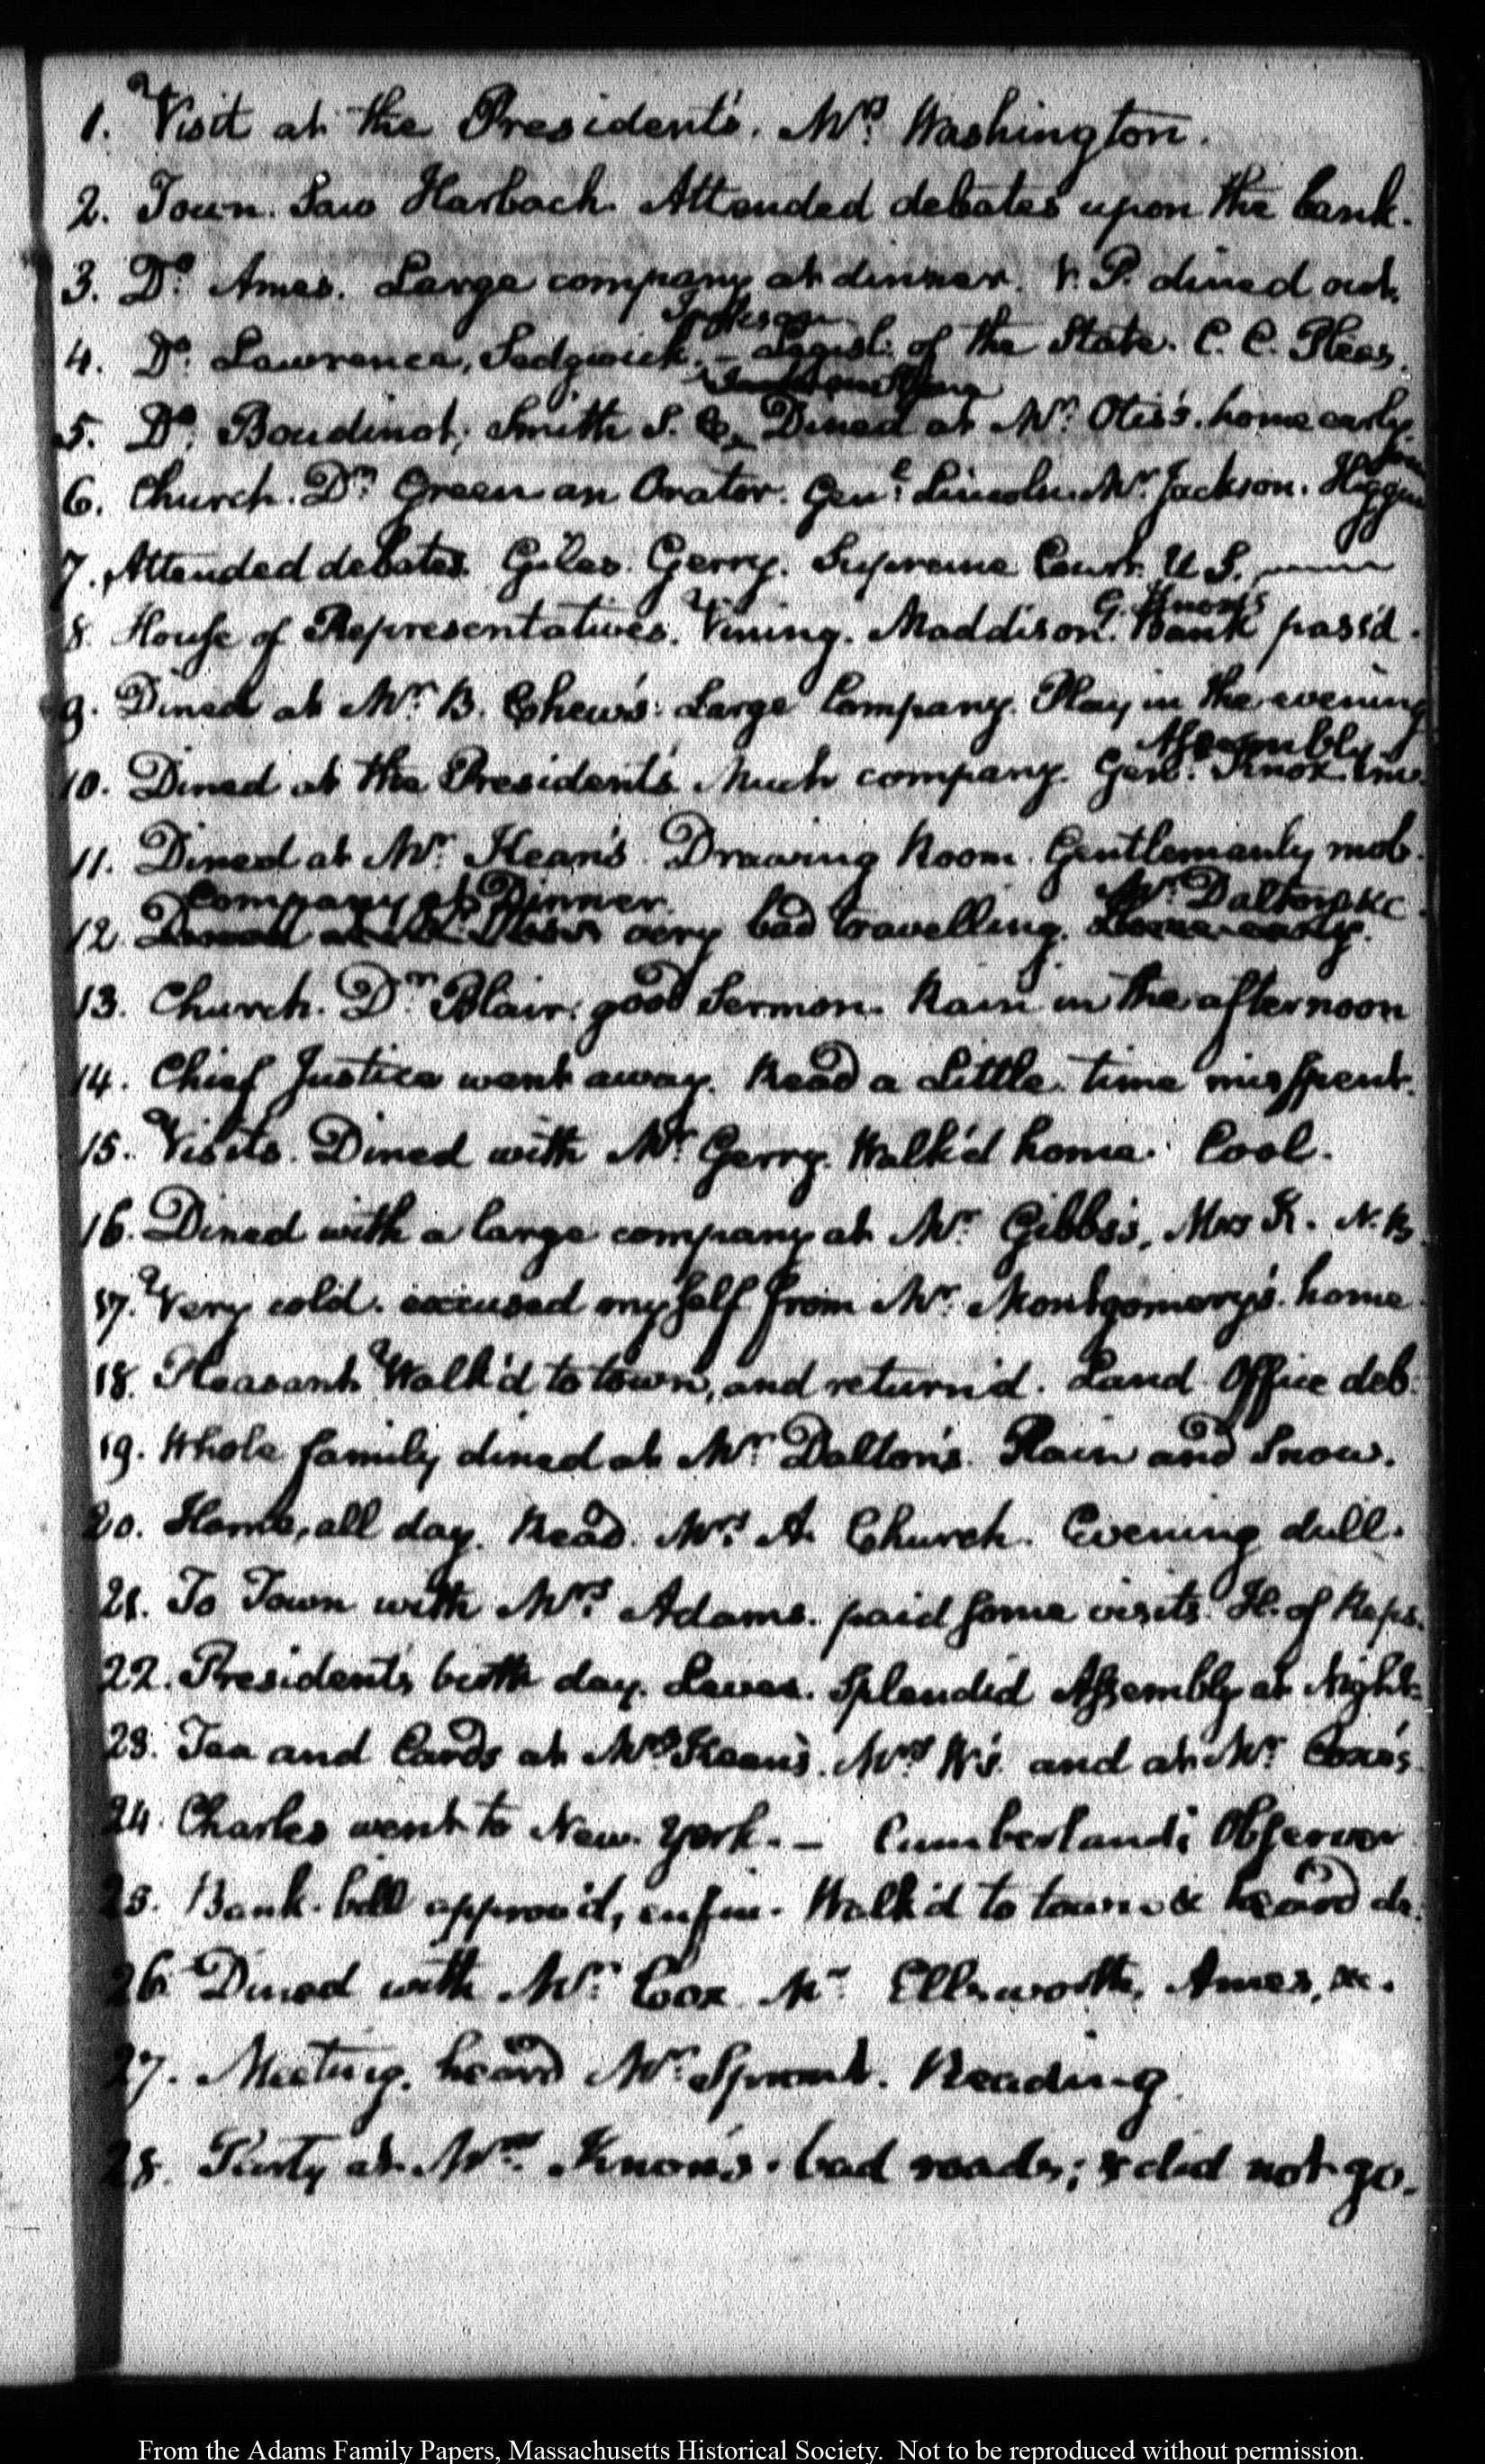 1. Visit at the President's. Mrs. Washington.
2. Town. Saw Harbach. Attended debates upon the bank.
3. Do. Ames. Large company at dinner. V. P. dined out.
Jackson
4. Do. Lawrence, Sedgwick. – Legisl: of the State. C. C. Pleas.
5. Do. Boudinot, Smith S. C. Dined at Mr. Otis's. home early.
6. Church. Dr. Green an Orator. Genl. Lincoln. Mr. Jackson.
7. Attended debates. Giles. Gerry. Supreme Court. U S.
G. Knox's
8. House of Representatives. Vining. Maddison. Bank pass'd.
9. Dined at Mr. B. Chew's. Large Company. Play in the evening
Assembly
10. Dined at the President's. Much company. Genl. Knox.
11. Dined at Mr. Kean's. Drawing Room. Gentlemanly mob.
Company at Dinner. Mr. Dalton &c.
12 very bad travelling.
13. Church. Dr. Blair. good Sermon. Rain in the afternoon
14. Chief Justice went away. Read a little. time misspent.
15. Visits. Dined with Mr. Gerry. Walk'd home. Cool.
16. Dined with a large company at Mr. Gibbs's. Mrs K. N. B.
17. Very cold. excused myself from Mr. Montgomery's. home
18. Pleasant. Walk'd to town, and return'd. Land Office deb.
19. Whole family dined at Mr. Dalton's. Rain and Snow.
20. Home, all day. Read. Mrs. A. Church. Evening dull.
21. To Town with Mrs. Adams. paid some visits. H. of Reps.
22. President's birth day. Levee. Splendid Assembly at Night.
23. Tea and Cards at Mrs. Kean's. Mrs. W's. and at Mr. Coxe's.
24. Charles went to New York. – Cumberland's Observer
25. Bank bill approv'd, enfin. Walk'd to town & heard de.
26. Dined with Mr. Cox. Mr. Ellsworth, Ames, &c.
27. Meeting. heard Mr. Sproat. Reading.
28. Party at Mrs. Knox's. bad roads; & did not go.
From the Adams Family Papers, Massachusetts Historical Society. Not to be reproduced without permission.